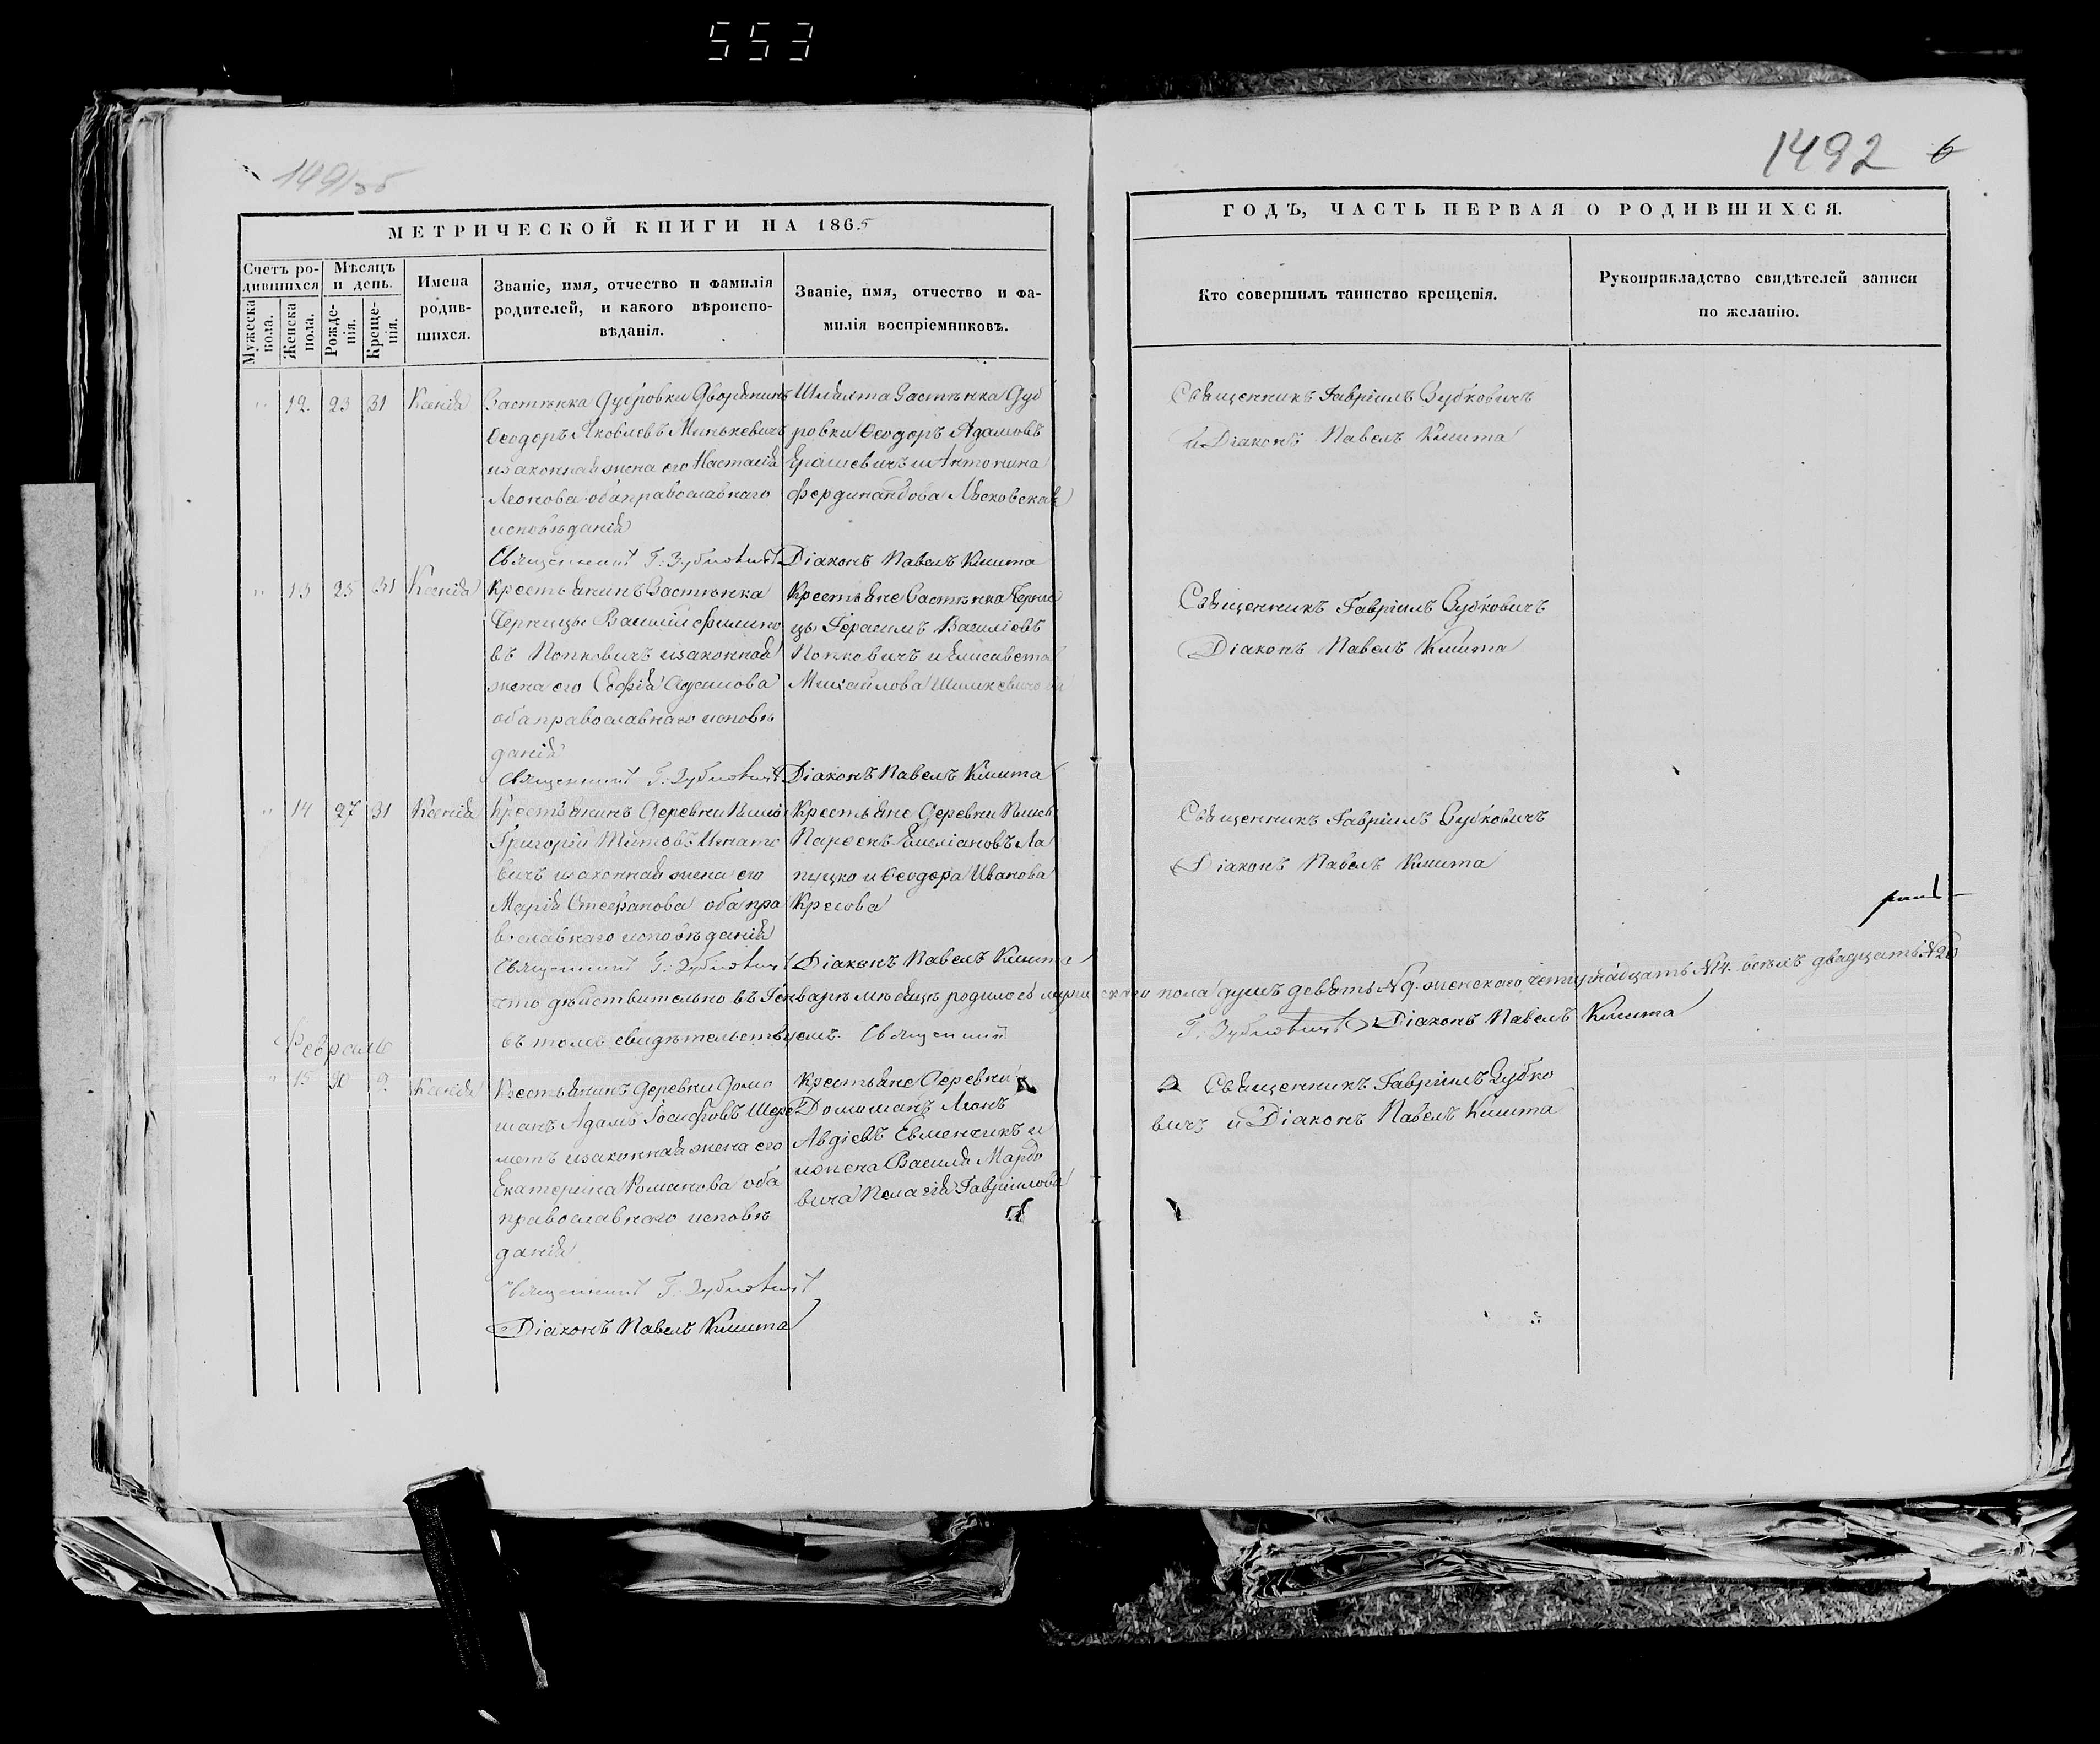 553
1491об
1492 6
МЕТРИЧЕСКОЙ КНИГИ НА 1865
ГОДЪ, ЧАСТЬ ПЕРВАЯ О РОДИВШИХСЯ.
Счетъ ро-
дившихся
Мужеска
пола.
Женска
пола.
Мѣсяцъ
и день.
Рожде-
нія.
Креще-
нія.
Имена
родив-
шихся.
Званіе, имя, отчество и фамилія
родителей, и какого вѣроиспо-
вѣданія.
Званіе, имя, отчество и фа-
милія воспріемниковъ.
Кто совершилъ таинство крещенія.
Рукоприкладство свидѣтелей записи
по желанію.
" 12. 23 31 Ксенія
Застѣнка Дубровки Дворянинъ
Ѳеодоръ Яковлевъ Минькевичъ
и законная жена его Настасія
Леонова оба православнаго
исповѣданія
Священникъ Г: Зубковичъ
Шляхта Застѣнка Дуб
ровки Ѳеодоръ Адамовъ
и Антонина
Фердинандова
Діаконъ Павелъ Кмита
Священникъ Гавріилъ Зубковичъ
и Діаконъ Павелъ Кмита
" 13 25 31 Ксенія
Крестьянинъ Застѣнка
Черницы Василій Филипо
въ Попковичъ и законная
жена его Софія Адамова
оба православнаго исповѣ
данія
Священникъ Г: Зубковичъ
Крестьяне Застѣнка Черни
цы Герасимъ Василіевъ
Попковичъ и Елисавета
Михайлова
Діаконъ Павелъ Кмита
Священникъ Гавріилъ Зубковичъ
Діаконъ Павелъ Кмита
" 14 27 31 Ксенія
Крестьянинъ Деревни
Григорій Титовъ Игнато
вичъ и законная жена его
Марія Стефанова оба пра
вославнаго исповѣданія
Священникъ Г: Зубковичъ
Крестьяне Деревни
Парѳенъ Емеліановъ Ла
пицко и Ѳеодора Иванова
Діаконъ Павелъ Кмита
Священникъ Гавріилъ Зубковичъ
Діаконъ Павелъ Кмита
что дѣйствительно въ Генварѣ мѣсяцѣ родилось мужескаго пола душъ девять №9. женскаго четырнадцать №14. всѣхъ двадцать №
въ томъ свидѣтельствуемъ. Священникъ Г: Зубковичъ Діаконъ Павелъ Кмита
Февраль
" 15 30 9 Ксенія
Крестьянинъ Деревни Домо
шанъ Адамъ Іосифовъ Шере
метъ и законная жена его
Екатерина Романова оба
православнаго исповѣ
данія
Священникъ Г: Зубковичъ
Діаконъ Павелъ Кмита
Крестьяне Деревни
Домошанъ Леонъ
Авдіевъ Евменчикъ и
жена Василія
Пелагія Гавріилова
Священникъ Гавріилъ Зубко
вичъ и Діаконъ Павелъ Кмита